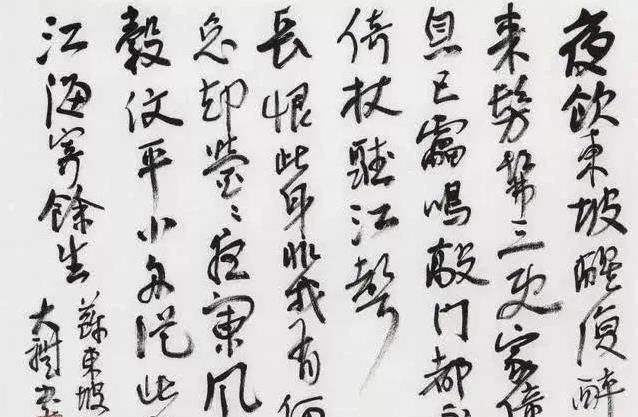 夜飲東坡醒復醉
來髣髴三更家僮
息已靁鳴敲門都
倚杖聽江聲
長恨此身非我有何
忘却營〻夜闌風
縠紋平小舟從此
江海寄餘生
蘇東坡
大樹书